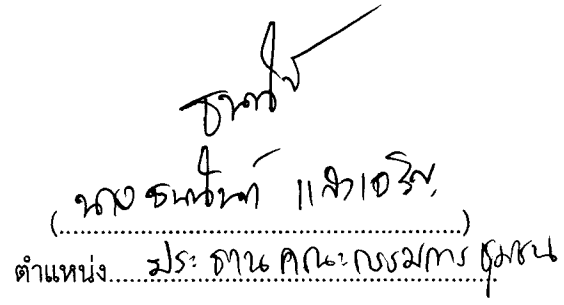 (นาง ธนนันท์ แสงเจริญ)
ตำแหน่ง ประธานคณะกรรมการชุมชน